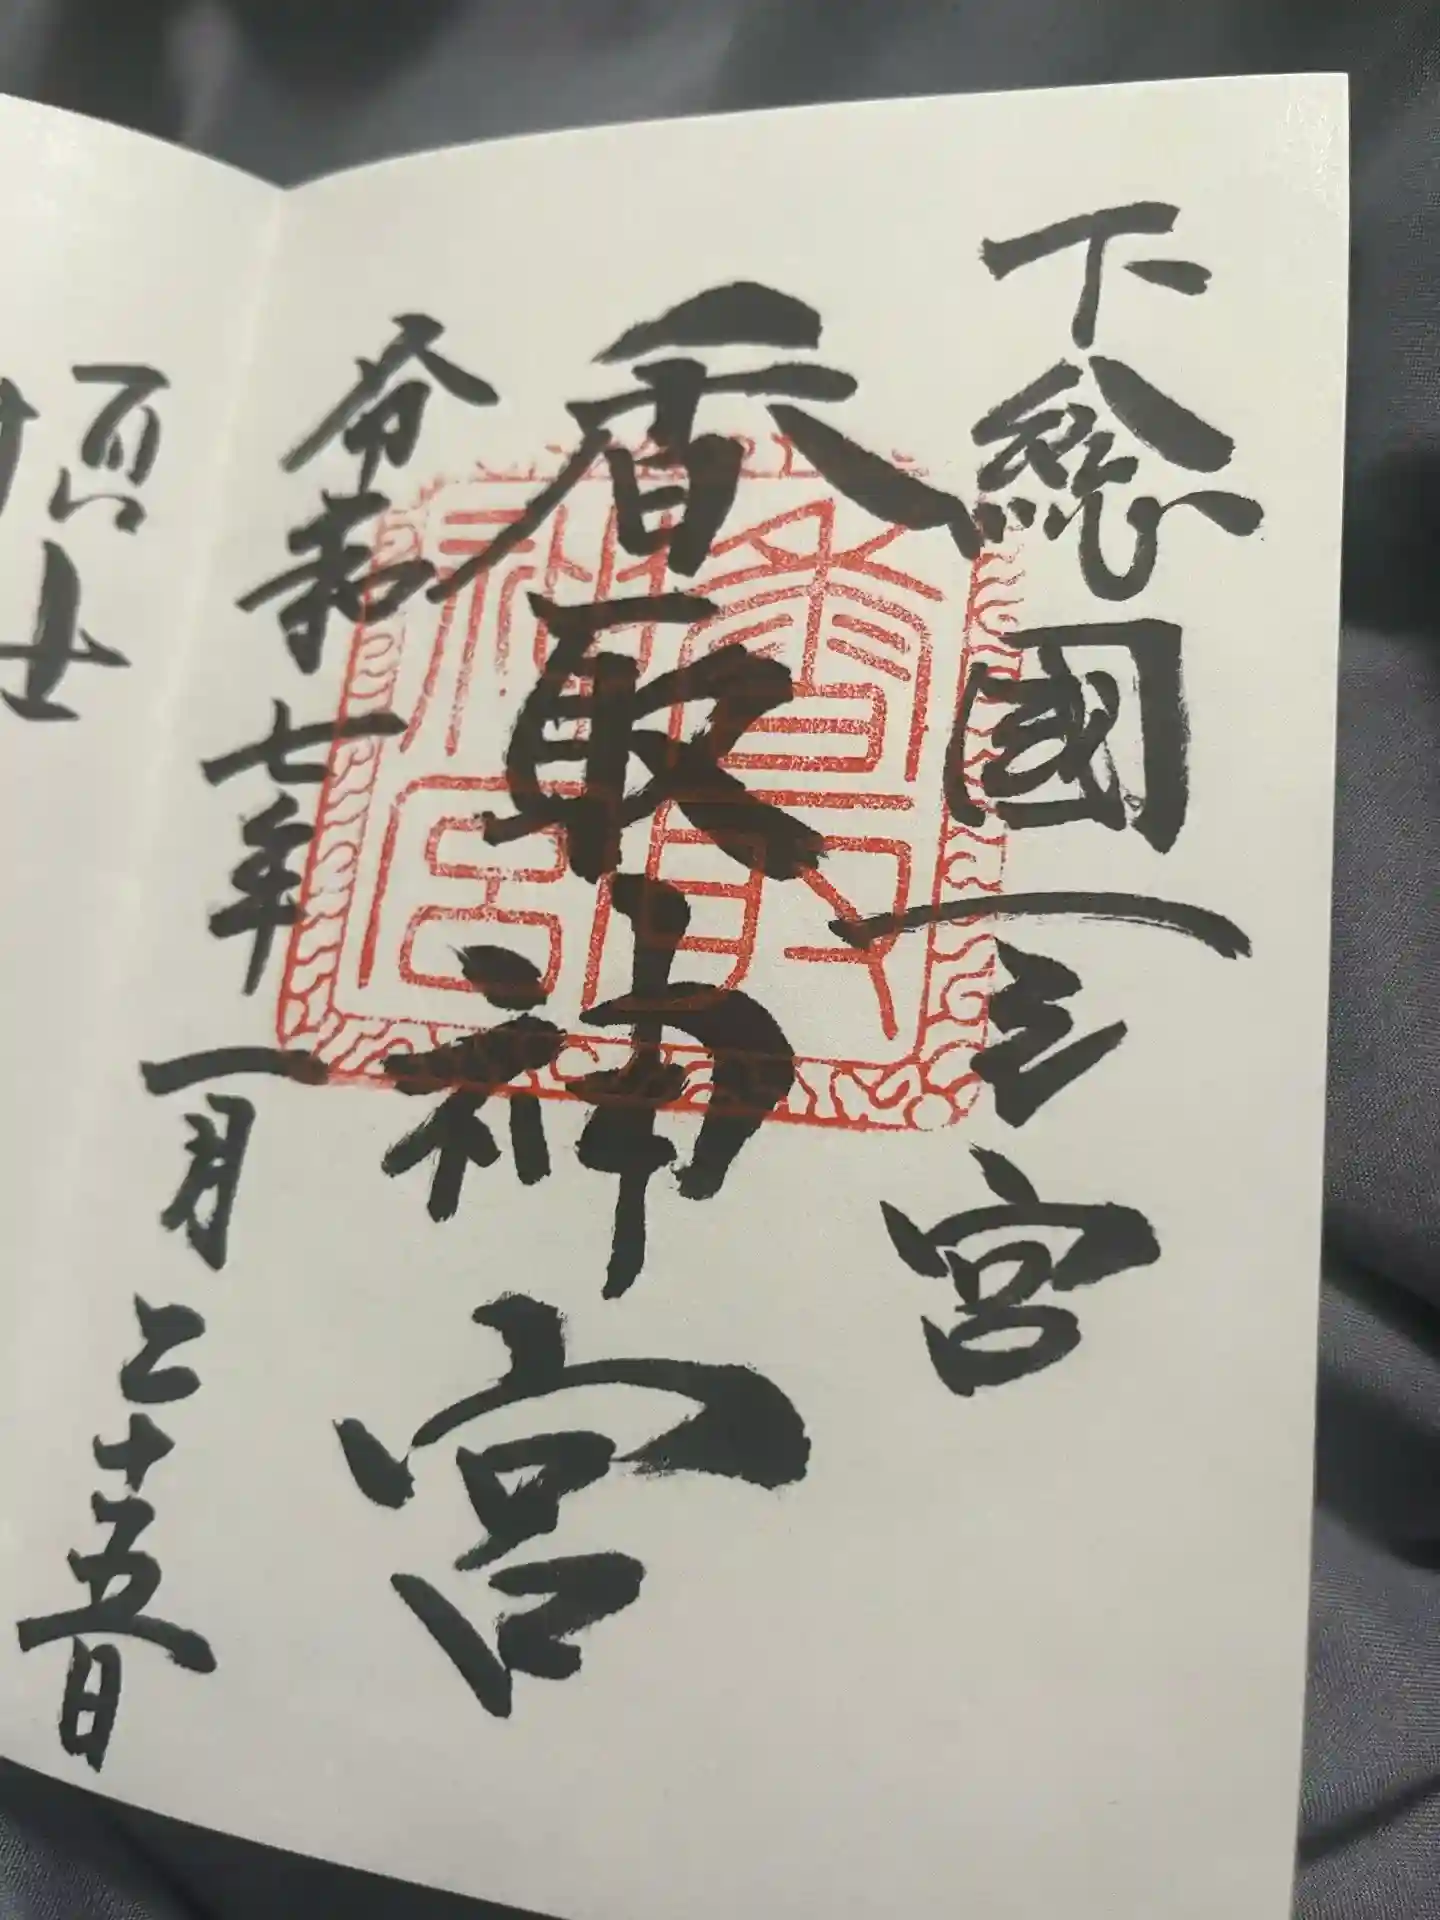 下總國一之宮
香取神宮
令和七年一月二十五日
香取神宮